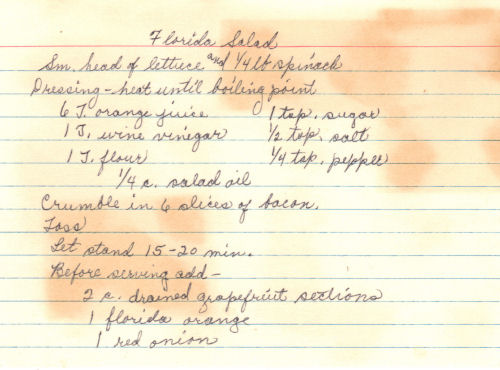 Florida Salad
Sm. head of lettuce and 1/4 lb spinach
Dressing - heat until boiling point
6 T. orange juice 1 tsp. sugar
1 T. wine vinegar 1/2 tsp. salt
1 T. flour 1/4 tsp. pepper
1/4 c. salad oil
Crumble in 6 slices of bacon.
Toss
Let stand 15-20 min.
Before serving add -
2 c. drained grapefruit sections
1 florida orange
1 red onion